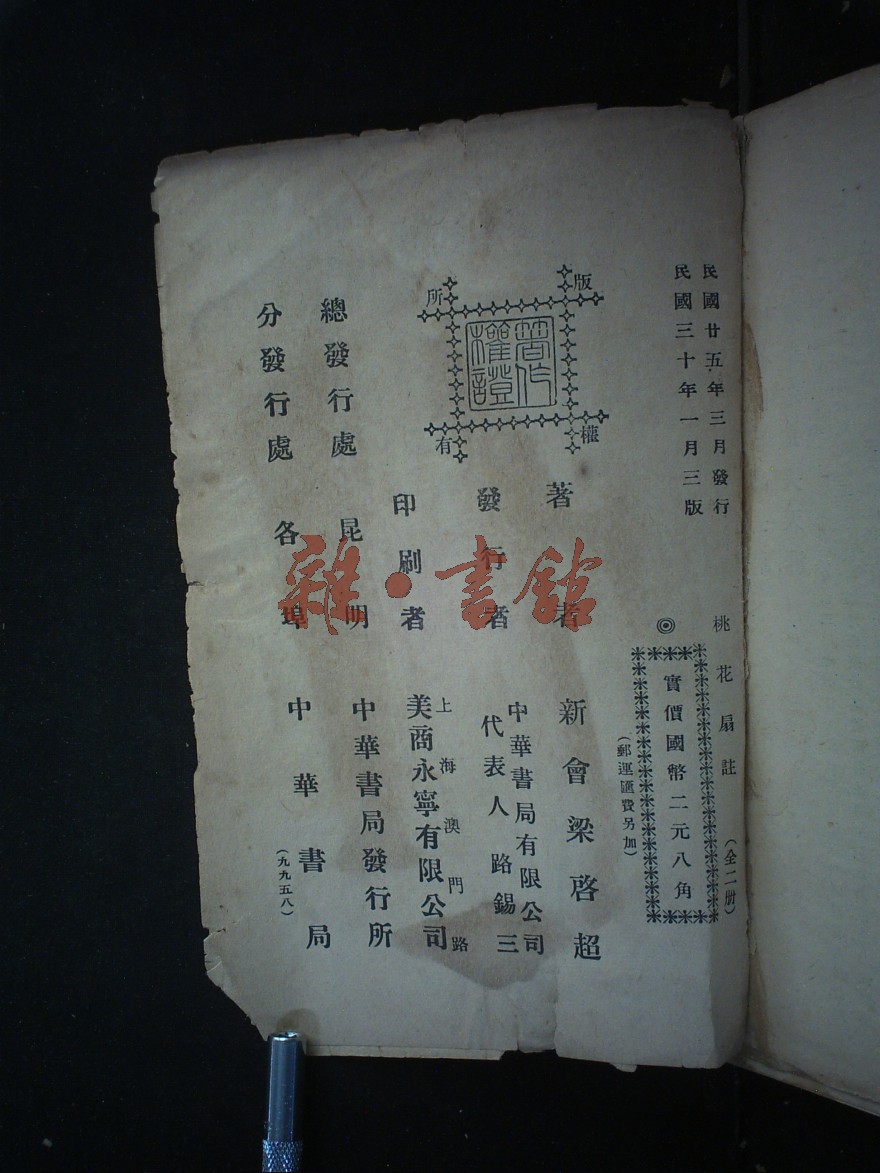 民國廿五年三月發行
民國三十年一月三版
桃花扇註（全二册）
◎實價國幣二元八角
（郵運匯費另加）
版權所有
著作權證
著者 新會梁啓超
發行者 中華書局有限公司
代表人路錫三
印刷者 上海澳門路
美商永寧有限公司
總發行處 昆明 中華書局發行所
分發行處 各埠 中華書局
（九九五八）
雜·書館